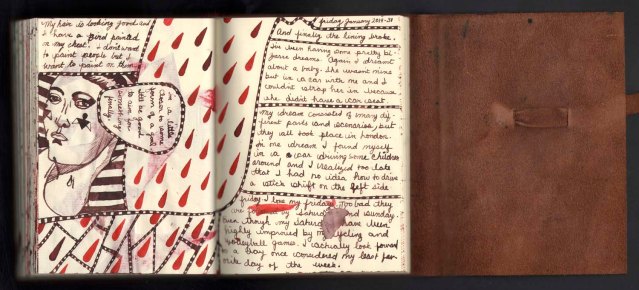 My hair is looking good and
I have a bird painted
on my chest. I don't want
to paint people but I
want to paint on them
in a little
closer to some
form of a goal
to aim for.
Something
lonely.
friday, January 2010
And finally the lining broke.
I've been having some pretty bi-
zarre dreams. Again I dreamt
about a baby. She wasn't mine
but in a car with me and I
couldn't strap her in because
she didn't have a car seat.
My dream consisted of many dif
ferent parts and scenarios, but
they all took place in London.
In one dream I found myself
in a car driving some children
around and I realized too late
that I had no idea how to drive
a stick shift on the left side
friday I love my fridays. Too bad they
are by Saturday and Sunday
even though my Saturdays have been
highly improved by my cycling and
volleyball games. I actually look forward
to a day once considered my least favo
rite day of the week.